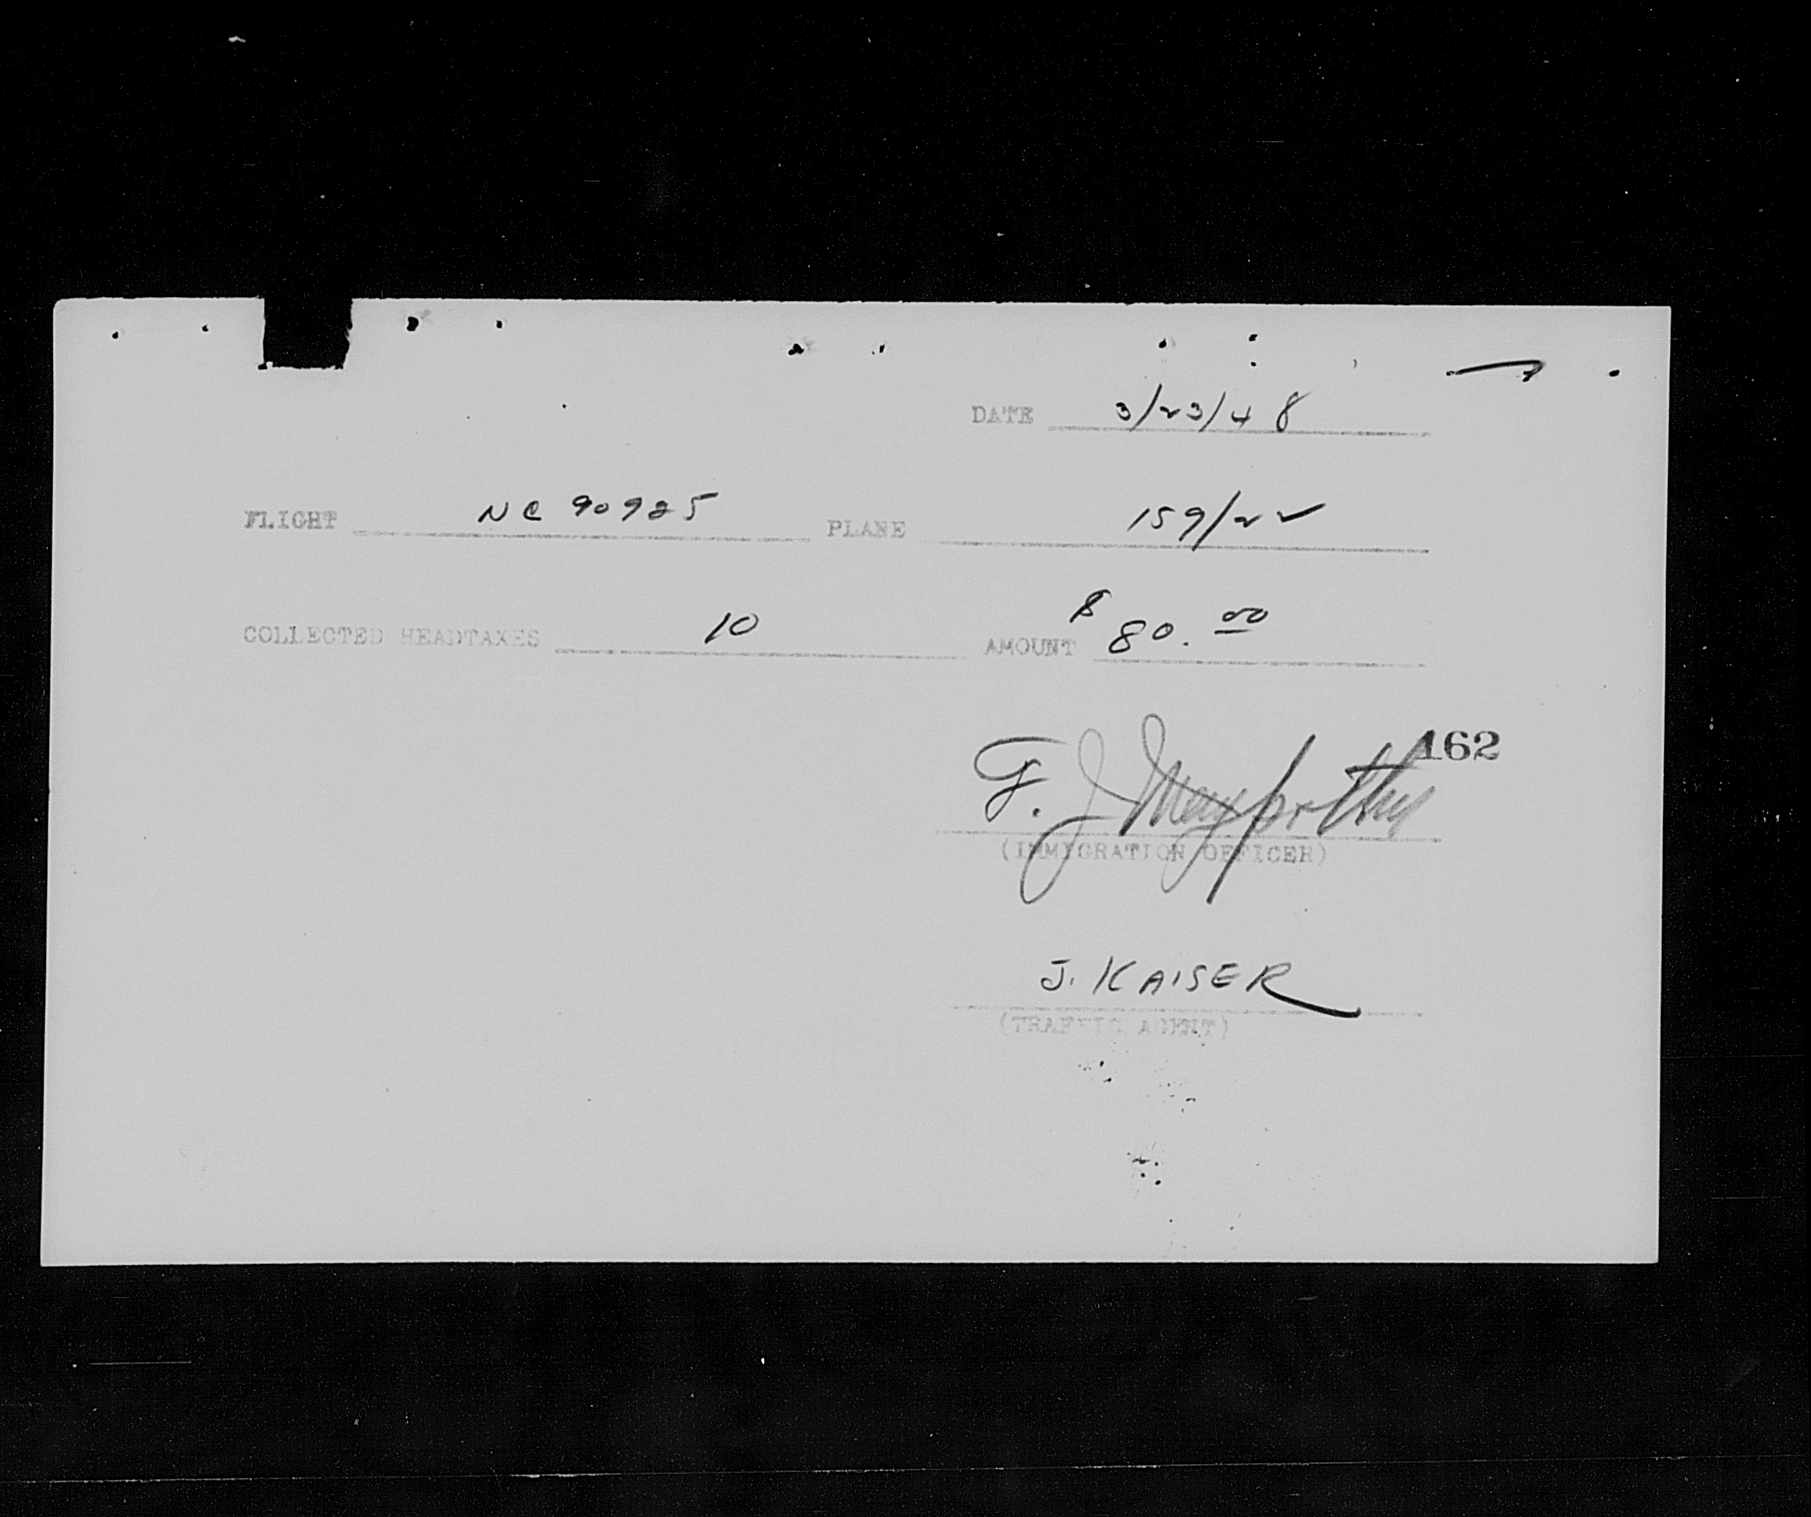 DATE 3/23/48
FLIGHT NC 90925 PLANE 159/22
COLLECTED HEADTAXES 10 AMOUNT $ 80.00
162
F. J.
(IMMIGRATION OFFICER)
J. KAISER
(TRAFFIC AGENT)